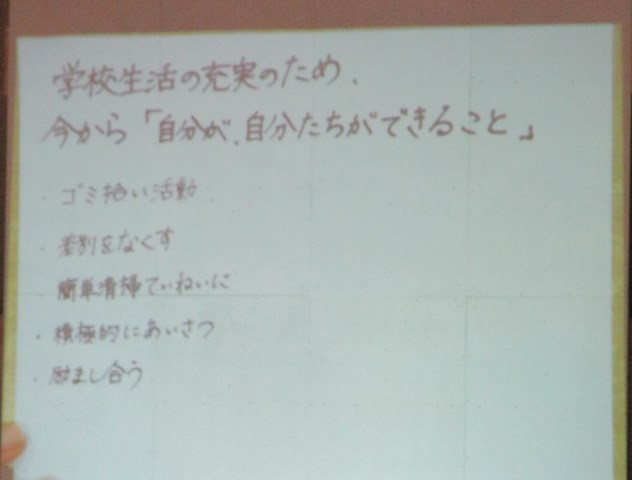 学校生活の充実のため、
今から「自分が、自分たちができること」
・ゴミ拾い活動
・差別をなくす
・簡単清掃ていねいに
・積極的にあいさつ
・励まし合う